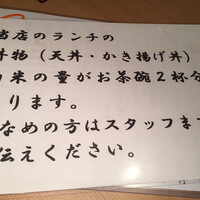 当店のランチの
丼物（天丼・かき揚げ丼）
米の量がお茶碗２杯分
ります。
なめの方はスタッフま
伝えください。